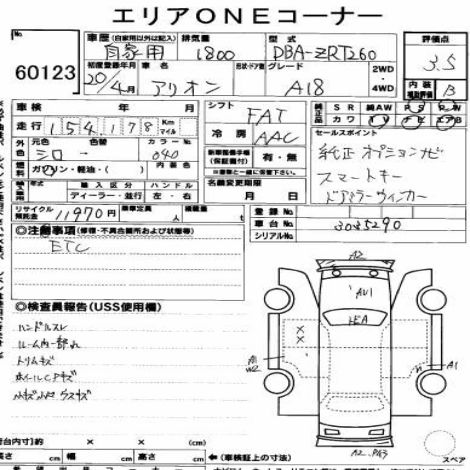 エリアONEコーナー
60123
車歴(自家用以外は記入) 排気量 型式 評価点
自家用 1800 DBA-ZRT260 3.5
初度登録年月 車名 形状・ドア数 グレード 2WD・4WD 内装
20/4月 アリオン A18 補助評価 B
車検 年 月 シフト 純正品 SR 純AW PS PW
走行 154,178 Km マイル FAT カワ TV ナビ エアB
外色 色替 カラーNo. 冷房 セールスポイント
シロー 040 AAC 純正オプションナビ
燃料 ガソリン・軽油・( ) 内装色 新車整備手帳(保証書付) 有・無 スマートキー
輸入車 年式 輸入区分 ハンドル ※車と一緒に保管して下さい ドアミラーウィンカー
ディーラー・並行 左・右 名義変更期限 月 日
リサイクル預託金 11970円 乗車定員 人 積載量 t 登録No.
◎注意事項(修復・不具合箇所および状態等) 車台No. 3035290
ETC シリアルNo.
A2
◎検査員報告(USS使用欄) AU1
ハンドルスレ EA
ルーム内一部汚れ ××
トリムキズ W2 A1
ホイールCPキズ
小キズ小凹 ウスキズ
荷台内寸 × × A2.PA3
長さ cm 幅 cm 高さ cm ◀(車検証上の寸法) スペア